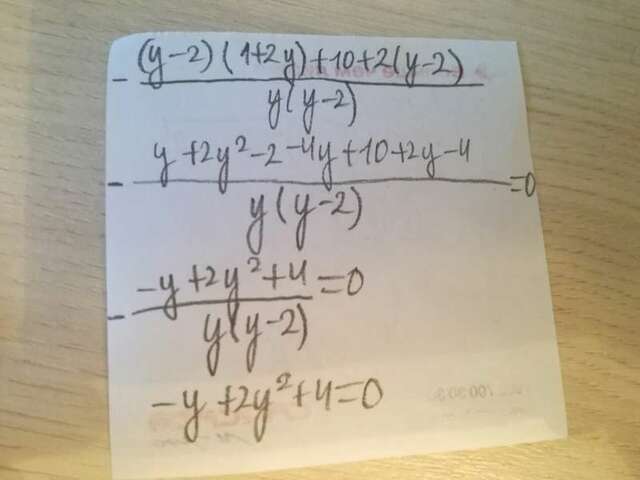 - (y-2)(1+2y)+10+2(y-2) / y(y-2)
- y+2y²-2-4y+10+2y-4 / y(y-2) =0
- -y+2y²+4 / y(y-2) =0
-y+2y²+4=0